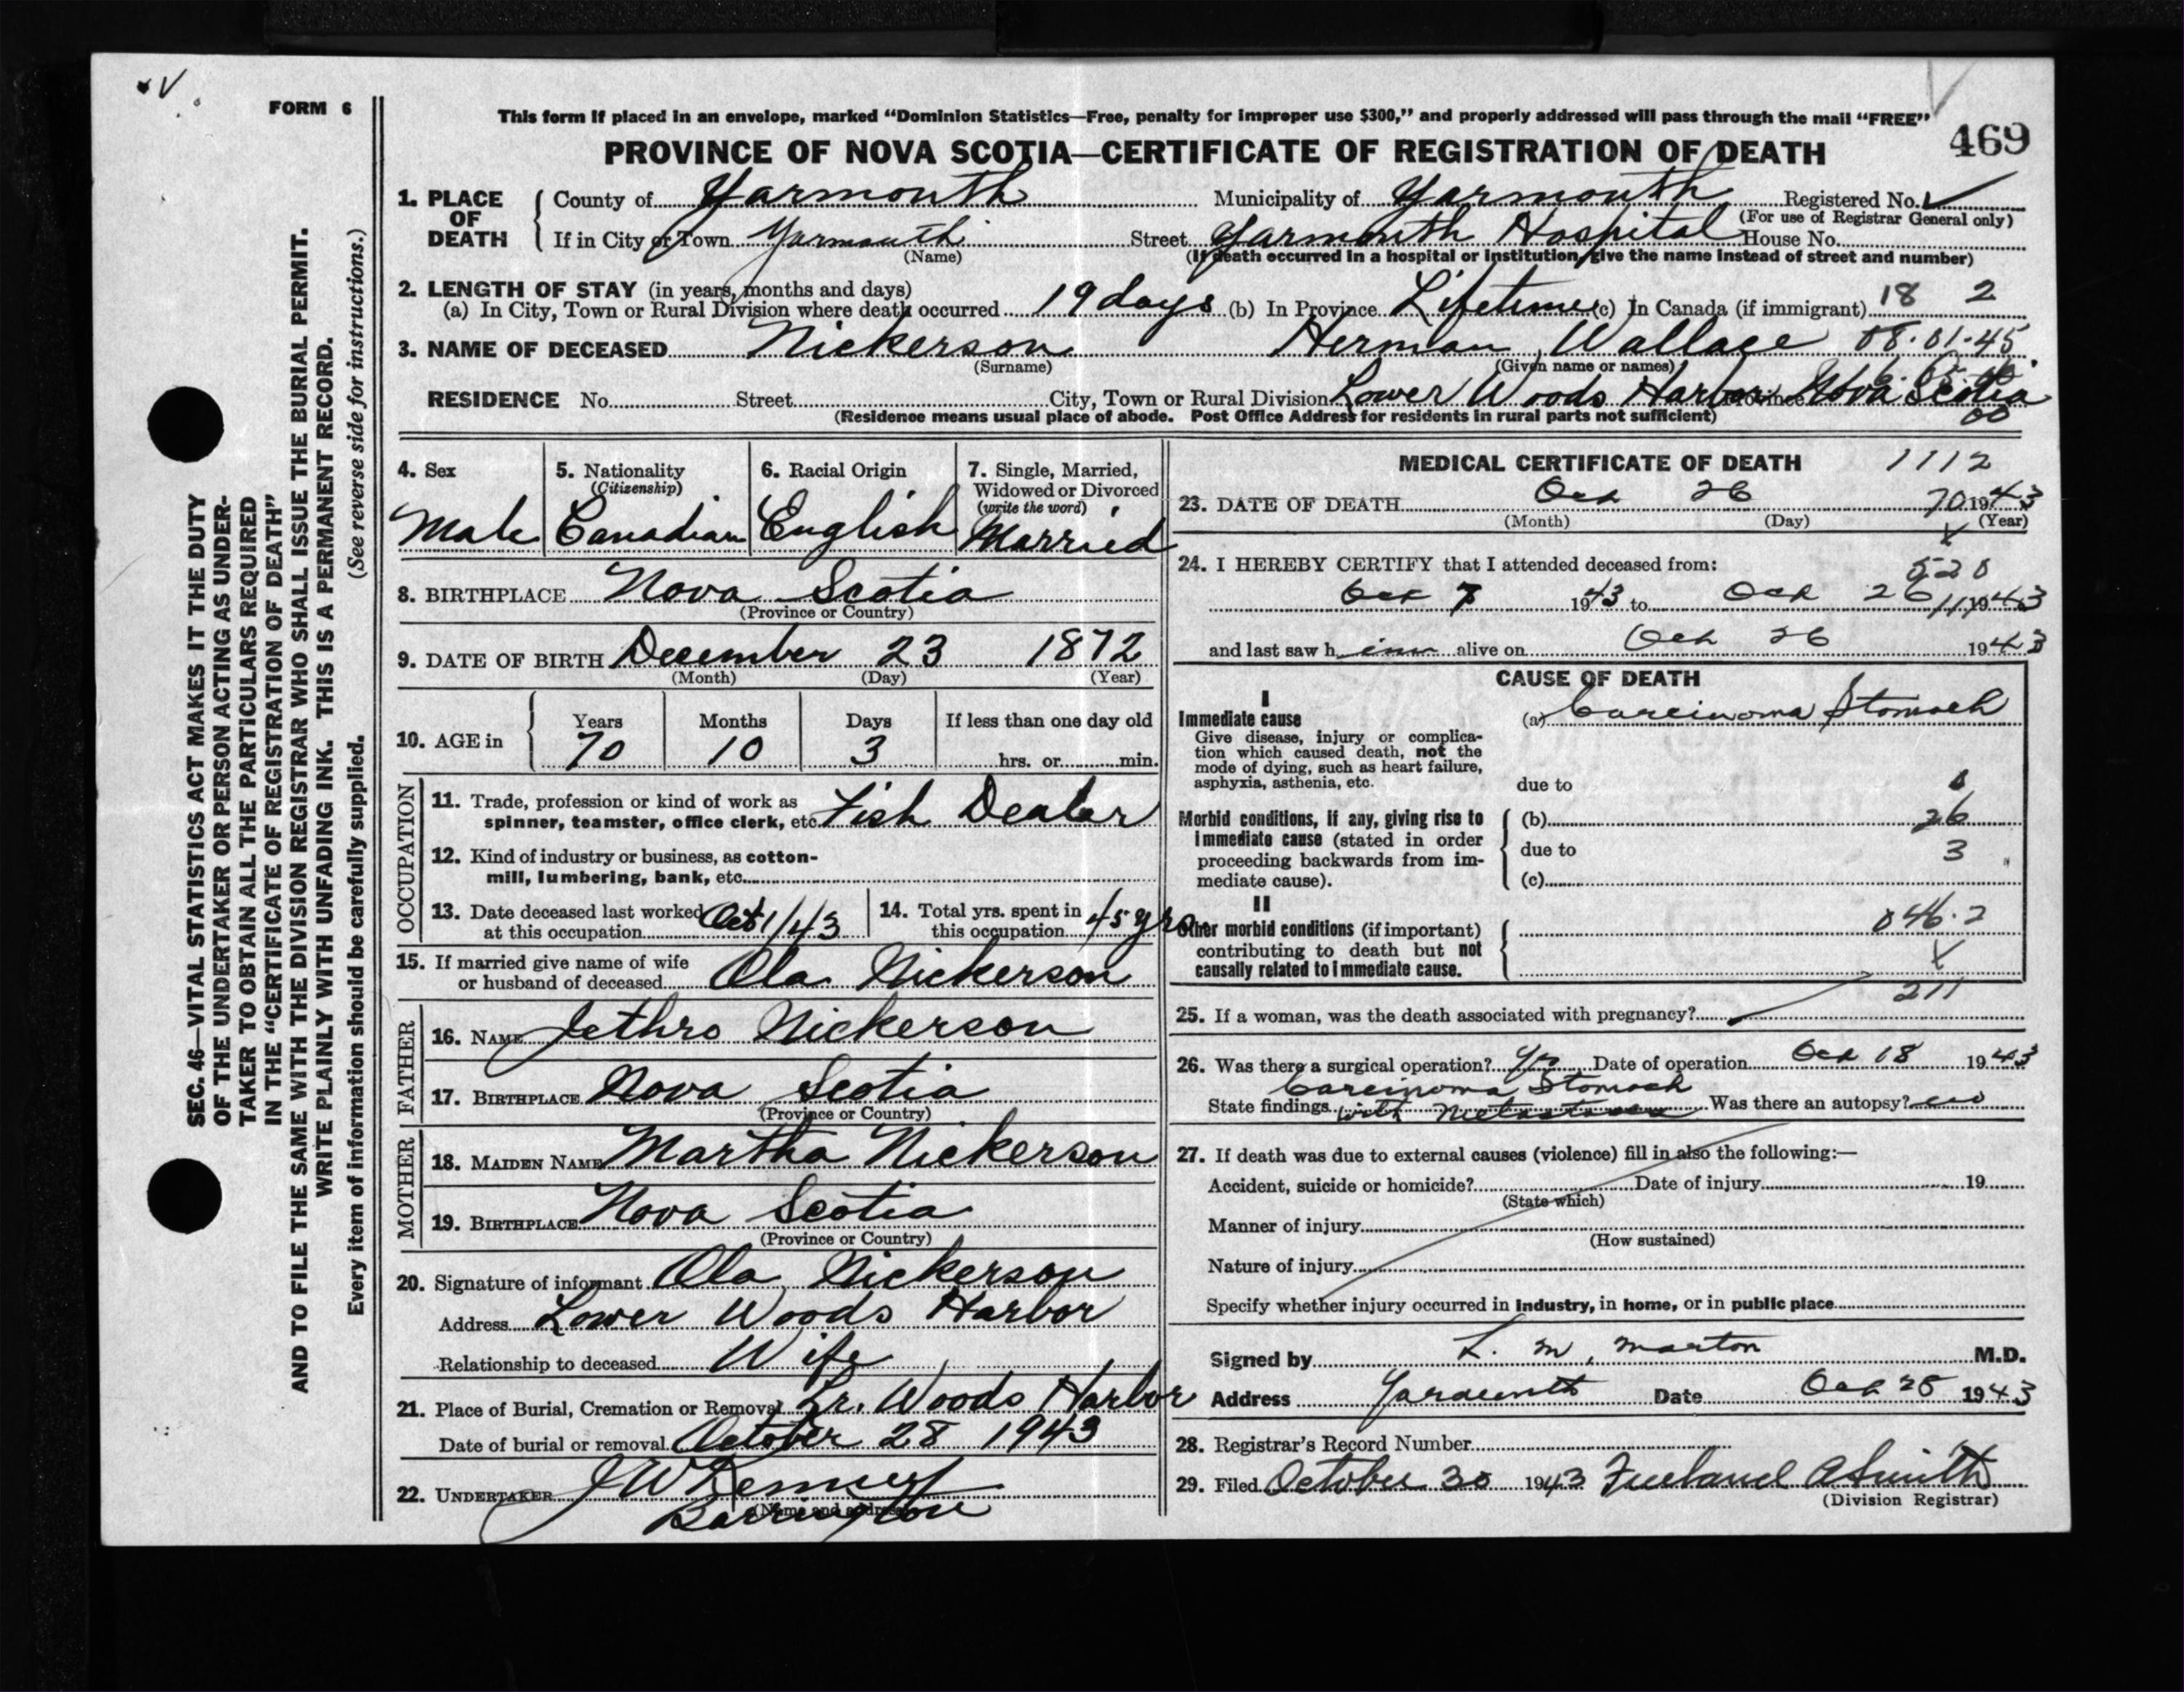 FORM 6
This form if placed in an envelope, marked "Dominion Statistics—Free, penalty for improper use $300," and properly addressed will pass through the mail "FREE"
PROVINCE OF NOVA SCOTIA—CERTIFICATE OF REGISTRATION OF DEATH
469
1. PLACE OF DEATH County of Yarmouth Municipality of Yarmouth Registered No.
(For use of Registrar General only)
If in City or Town Yarmouth Street Yarmouth Hospital House No.
(Name) (If death occurred in a hospital or institution, give the name instead of street and number)
2. LENGTH OF STAY (in years, months and days)
(a) In City, Town or Rural Division where death occurred 19 days (b) In Province Lifetime (c) In Canada (if immigrant) 18 2
3. NAME OF DECEASED Nickerson Herman Wallace 08.01.45
(Surname) (Given name or names)
RESIDENCE No. Street City, Town or Rural Division Lower Woods Harbor Province Nova Scotia
(Residence means usual place of abode. Post Office Address for residents in rural parts not sufficient) 00
4. Sex Male
5. Nationality (Citizenship) Canadian
6. Racial Origin English
7. Single, Married, Widowed or Divorced (write the word) Married
8. BIRTHPLACE Nova Scotia
(Province or Country)
9. DATE OF BIRTH December 23 1872
(Month) (Day) (Year)
10. AGE in Years Months Days If less than one day old
70 10 3 hrs. or min.
OCCUPATION
11. Trade, profession or kind of work as
spinner, teamster, office clerk, etc. Fish Dealer
12. Kind of industry or business, as cotton-
mill, lumbering, bank, etc.
13. Date deceased last worked
at this occupation Oct 1/43
14. Total yrs. spent in
this occupation 45 yrs
15. If married give name of wife
or husband of deceased Ola Nickerson
FATHER
16. NAME Jethro Nickerson
17. BIRTHPLACE Nova Scotia
(Province or Country)
MOTHER
18. MAIDEN NAME Martha Nickerson
19. BIRTHPLACE Nova Scotia
(Province or Country)
20. Signature of informant Ola Nickerson
Address Lower Woods Harbor
Relationship to deceased Wife
21. Place of Burial, Cremation or Removal Lr. Woods Harbor
Date of burial or removal October 28 1943
22. UNDERTAKER J W Kenney
(Name and address)
Barrington
MEDICAL CERTIFICATE OF DEATH 1112
23. DATE OF DEATH Oct 26 70 1943
(Month) (Day) (Year)
24. I HEREBY CERTIFY that I attended deceased from: 520
Oct 7 1943 to Oct 26 1943
and last saw h im alive on Oct 26 1943
CAUSE OF DEATH
I
Immediate cause (a) Carcinoma Stomach
Give disease, injury or complica-
tion which caused death, not the
mode of dying, such as heart failure,
asphyxia, asthenia, etc. due to
Morbid conditions, if any, giving rise to (b) 26
immediate cause (stated in order due to 3
proceeding backwards from im-
mediate cause). (c)
II
Other morbid conditions (if important) 046.2
contributing to death but not
causally related to immediate cause.
211
25. If a woman, was the death associated with pregnancy?
26. Was there a surgical operation? Yes Date of operation Oct 18 1943
Carcinoma Stomach
State findings with Metastases Was there an autopsy? no
27. If death was due to external causes (violence) fill in also the following:—
Accident, suicide or homicide? Date of injury 19
(State which)
Manner of injury
(How sustained)
Nature of injury
Specify whether injury occurred in industry, in home, or in public place
Signed by L. M. Morton M.D.
Address Yarmouth Date Oct 28 1943
28. Registrar's Record Number
29. Filed October 30 1943 Freeland A Smith
(Division Registrar)
SEC. 46—VITAL STATISTICS ACT MAKES IT THE DUTY
OF THE UNDERTAKER OR PERSON ACTING AS UNDER-
TAKER TO OBTAIN ALL THE PARTICULARS REQUIRED
IN THE "CERTIFICATE OF REGISTRATION OF DEATH"
AND TO FILE THE SAME WITH THE DIVISION REGISTRAR WHO SHALL ISSUE THE BURIAL PERMIT.
WRITE PLAINLY WITH UNFADING INK. THIS IS A PERMANENT RECORD.
Every item of information should be carefully supplied. (See reverse side for instructions.)